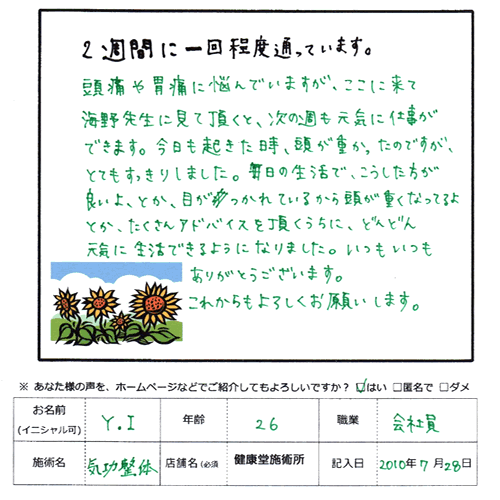 2週間に一回程度通っています。
頭痛や胃痛に悩んでいますが、ここに来て
海野先生に見て頂くと、次の週も元気に仕事が
できます。今日も起きた時、頭が重かったのですが、
とてもすっきりしました。毎日の生活で、こうした方が
良いよ、とか、目がつかれているから頭が重くなってるよ
とか、たくさんアドバイスを頂くうちに、どんどん
元気に生活できるようになりました。いつもいつも
ありがとうございます。
これからもよろしくお願いします。
※ あなた様の声を、ホームページなどでご紹介してもよろしいですか？ ☑はい □匿名で □ダメ
お名前 (イニシャル可) Y.I 年齢 26 職業 会社員
施術名 気功整体 店舗名 (必須 健康堂施術所 記入日 2010年7月28日